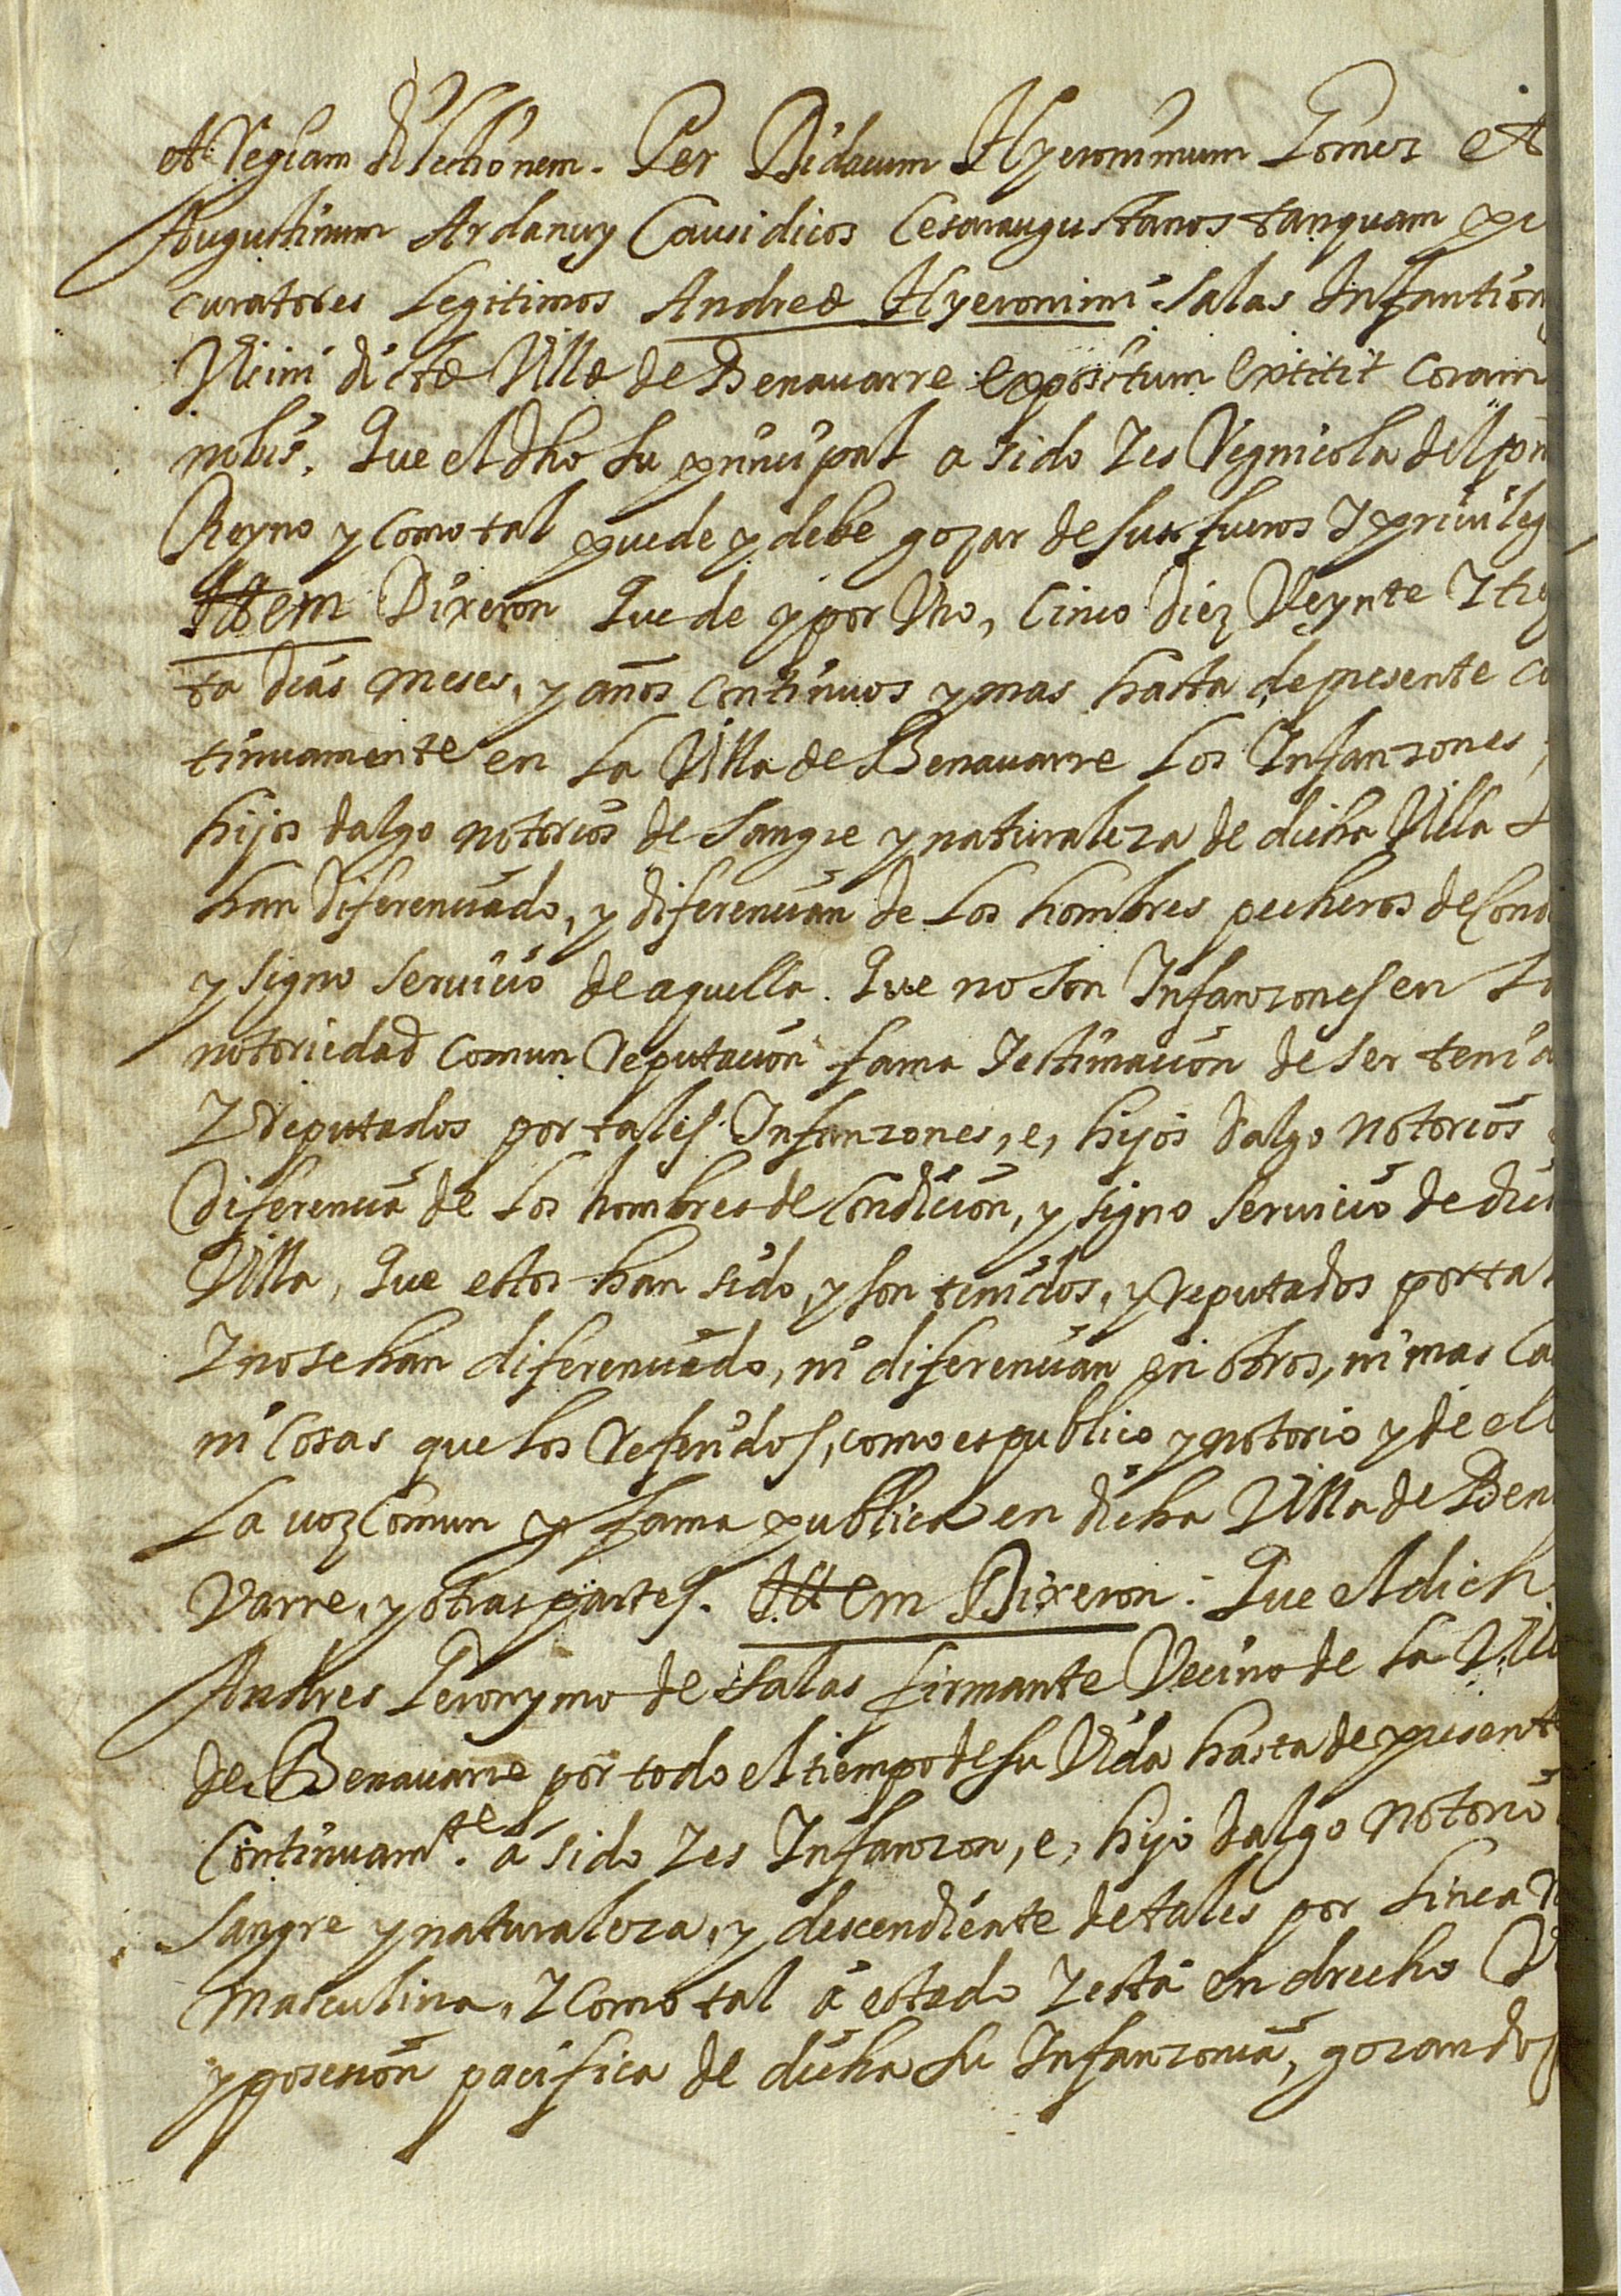 et Regiam dilectionem. Per Didacum Hyeronimum Gomez et
Augustinum Ardanuy Causidicos Cesaraugustanos tanquam
curatores Legitimos Andree Hyeronimi Salas Infantion
Vicini dicte Ville de Benauarre expositum extitit coram
nobis. Que el dho su principal a sido Ies Regnicola del
Reyno y como tal puede y debe gozar de sus fueros I priuileg
Ittem Dixeron Que de y por Vno, Cinco diez Veynte I tre
ta dias meses, y años continuos y mas hasta de presente co
tinuamente en La Villa de Benauarre Los Infanzones,
hijos dalgo notorios de sangre y naturaleza de dicha Villa
han diferenciado, y diferencian de Los hombres pecheros de Condi
y signo seruicio de aquella. Que no son Infanzones en
notoriedad comun reputacion fama Iestimacion de ser teni
I reputados por tales Infanzones, e, hijos dalgo notorios
Diferencia de Los hombres de Condicion, y signo seruicio de dic
Villa, Que estos han sido, y son tenidos, y reputados por tal
I no se han diferenciado, ni diferencian en otros, ni mas Ca
ni Cosas que Los referidos, como es publico y notorio y de ell
La uoz Comun y fama publica en dicha Villa de Ben
varre, y otras partes. Ittem Dixeron: Que el dich
Andres Geronymo de Salas firmante Vecino de La Vill
de Benauarre por todo el tiempo de su Vida hasta de present
Continuamte. a sido Ies Infanzon, e, hijo dalgo notorio
sangre y naturaleza, y descendiente de tales por Linea
masculina, I como tal a estado Iesta en drecho
y posesion pacifica de dicha su Infanzonia, gozando